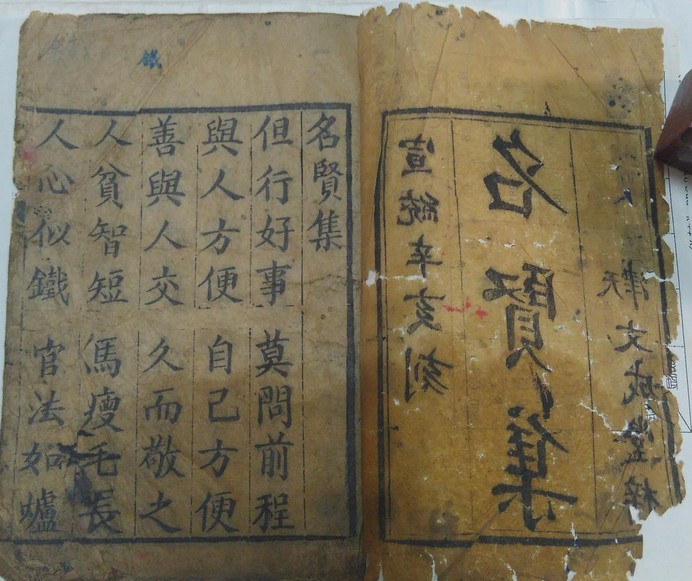 宣統辛亥刻
名賢集
天津文成堂梓
名賢集
但行好事 莫問前程
與人方便 自己方便
善與人交 久而敬之
人貧智短 馬瘦毛長
人心似鐵 官法如爐
鐵